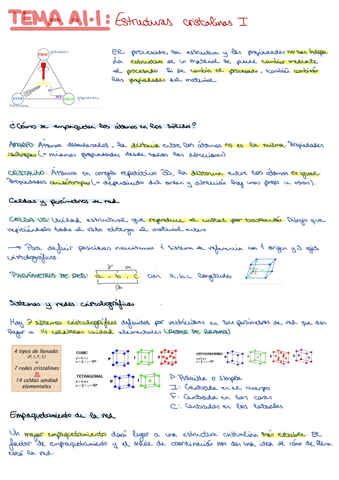 TEMA A1.1: Estructuras cristalinas I
El procesado, la estructura y las propiedades no son indep.
La estructura de un material se puede cambiar mediante
el procesado. Si se cambia el procesado, también cambian
las propiedades del material
¿Cómo se empaquetan los átomos en los sólidos?
AMORFO: Átomos desordenados, la distancia entre los átomos no es la misma. Propiedades
isótropas (= mismas propiedades desde todas las direcciones)
CRISTALINO: Átomos en arreglo repetitivo 3D, la distancia entre los átomos es igual
Propiedades anisótropas (= dependiendo del orden y dirección hay unas props u otras).
Celdas y parámetros de red
CELDA UD: Unidad estructural que reproduce el cristal por traslación. Dibujo que
repitiéndolo todo el rato obtengo el material entero
→ Para definir posiciones necesitamos 1 sistema de referencia con 1 origen y 3 ejes
cristalográficos.
PARÁMETROS DE RED: a - b - c con a, b, c longitudes
Sistemas y redes cristalográficas
Hay 7 sistemas cristalográficos definidos por restricciones en sus parámetros de red que dan
lugar a 14 celdas unidad elementales (REDES DE BRAVAIS)
4 tipos de llenado
(P, I, F, C)
+
7 redes cristalinas
14 celdas unidad
elementales
CUBIC
TETRAGONAL
ORTHORHOMBIC
P: Primitiva o simple
I: Centrada en el cuerpo
F: Centrada en las caras
C: Centradas en los laterales
Empaquetamiento de la red
Un mayor empaquetamiento dará lugar a una estructura cristalina más estable. El
factor de empaquetamiento y el índice de coordinación nos dan una idea de cómo de llena
está la red.